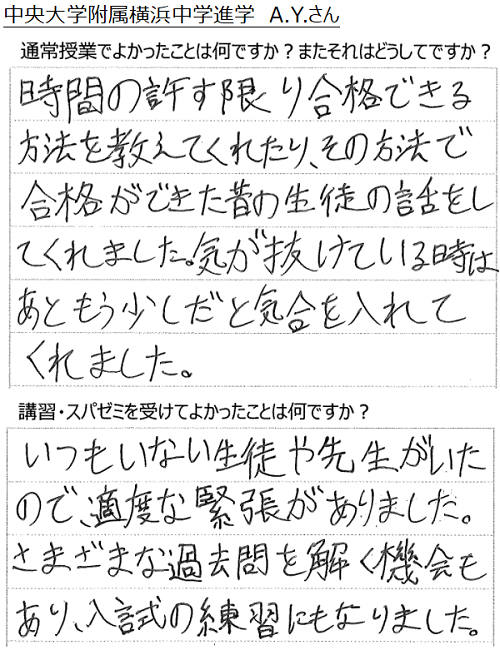 中央大学附属横浜中学進学 A.Y.さん
通常授業でよかったことは何ですか？またそれはどうしてですか？
時間の許す限り合格できる
方法を教えてくれたり、その方法で
合格ができた昔の生徒の話をし
てくれました。気が抜けている時は
あともう少しだと気合を入れて
くれました。
講習・スパゼミを受けてよかったことは何ですか？
いつもいない生徒や先生がいた
ので、適度な緊張がありました。
さまざまな過去問を解く機会も
あり、入試の練習にもなりました。